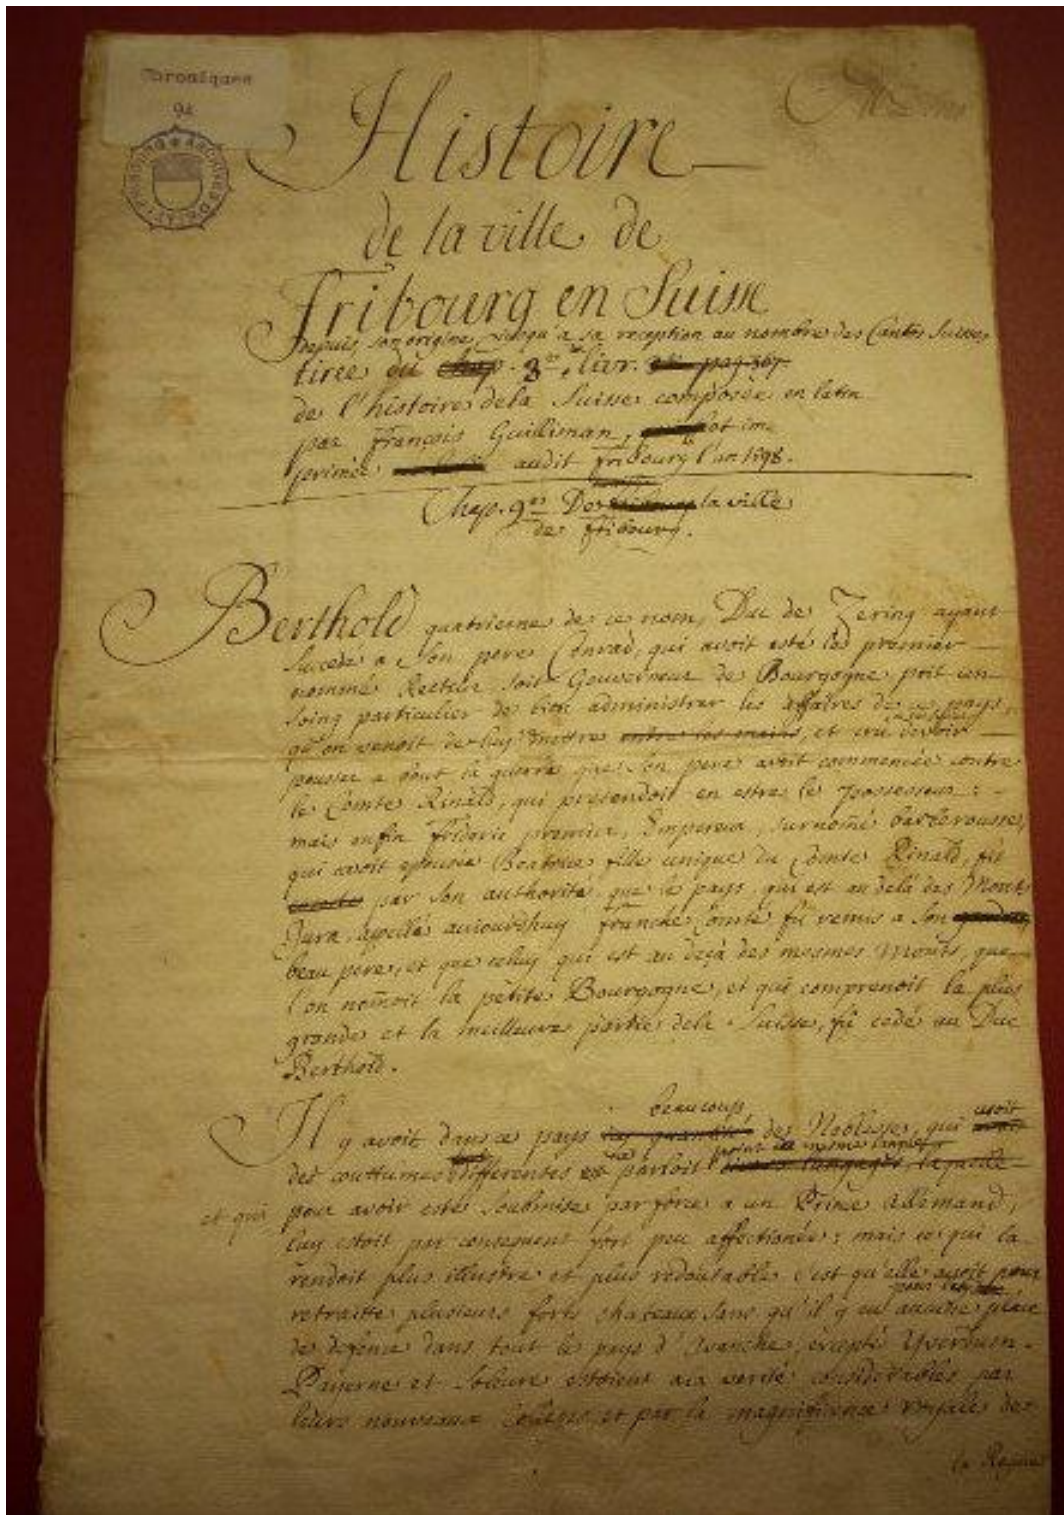 Chroniques
94
Histoire
de la ville de
Fribourg en Suisse
Depuis son origine, jusqu'a sa reception au nombre des Cantons Suisses
tirée du 3me livr.
de l'histoire de la Suisse composée en latin
par François Guilliman, im
primée audit fribourg l'an 1598.
Chap. 9me De la ville
de fribourg.
Berthold quatrieme de ce nom, Duc de Zering ayant
succedé a son pere Conrad, qui avoit esté le premier
nommé Recteur soit Gouverneur de Bourgogne prit un
soing particulier de bien administrer les affaires de ce pays
qu'on venoit de luy mettre entre les mains, et crû devoir
pousser a bout la guerre que son pere avoit commencée contre
le Comte Rinald, qui pretendoit en estre le possesseur :
mais enfin frideric premier, Empereur, surnomé barberousse,
qui avoit epousée Beatrice fille unique du Comte Rinald, fit
par son authorité que le pays, qui est au delà des Monts
Jura, appellé aujourdhuy franche Comté fû remis a son
beau pere, et que celuy qui est au deçà des mesmes Monts, que
l'on nomoit la petite Bourgogne, et qui comprenoit la plus
grande et la meilleure partie dela Suisse, fû cedé au Duc
Berthold.
beaucoup avoit
Il y avoit dans ce pays des Noblesses, qui
point la mesme langue
des couttumes differentes et parloit divers langages, laquelle
et qui pour avoir esté soubmise par force a un Prince Allemand,
luy estoit par consequent fort peu affectionée : mais ce qui la
rendoit plus illustre et plus redoutable c'est qu'elle avoit pour
retraitte plusieurs forts chateaux sans qu'il y eu aucune place
de defence dans tout le pays d'Avanche, excepté Yverdun.
Payerne et Soleure estoient a la verité considerables par
leurs nouveaux et par la magnificence royalle de
la Reyne